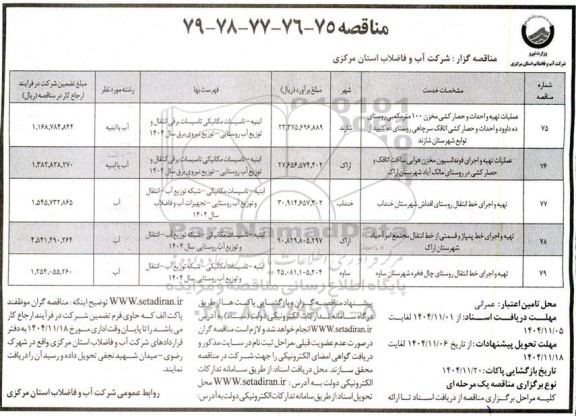 مناقصه ۷۵-۷۶-۷۷-۷۸-۷۹
وزارت نیرو
شرکت آب و فاضلاب استان مرکزی
مناقصه گزار: شرکت آب و فاضلاب استان مرکزی
شماره مناقصه | مشخصات خدمت | شهر | مبلغ برآورد (ریال) | فهرست بها | رشته مورد نظر | مبلغ تضمین شرکت در فرایند ارجاع کار در مناقصه (ریال)
۷۵ | عملیات تهیه و احداث و حصار کشی مخزن ۱۰۰ مترمکعبی روستای ده داوود و احداث و حصار کشی اتاقک سرچاهی روستای ده کایید از توابع شهرستان شازند | شازند | ۲۳,۳۷۵,۶۹۶,۸۸۹ | ابنیه - تاسیسات مکانیکی تاسیسات برقی انتقال و توزیع آب روستایی - توزیع نیروی برق سال ۱۴۰۴ | آب یا ابنیه | ۱,۱۶۸,۷۸۴,۸۴۴
۷۶ | عملیات تهیه و اجرای فونداسیون مخزن هوایی ساخت اتاقک و حصار کشی در روستای مالک آباد شهرستان اراک | اراک | ۲۷,۶۵۶,۵۷۴,۴۰۲ | ابنیه - تاسیسات مکانیکی تاسیسات برقی انتقال و توزیع آب روستایی - توزیع نیروی برق سال ۱۴۰۴ | آب یا ابنیه | ۱,۳۸۲,۸۲۸,۲۷۰
۷۷ | تهیه و اجرای خط انتقال روستای اقداش شهرستان خنداب | خنداب | ۳۰,۹۱۴,۶۵۷,۳۰۲ | ابنیه - تاسیسات مکانیکی - شبکه توزیع آب - انتقال و توزیع آب روستایی - تجهیزات آب و فاضلاب سال ۱۴۰۴ | آب | ۱,۵۴۵,۷۳۲,۸۶۵
۷۸ | تهیه و اجرای خط پمپاژ و قسمتی از خط انتقال مجتمع امرآحیاء شهرستان اراک | اراک | ۹۰,۸۲۹,۸۰۵,۲۹۷ | ابنیه - تاسیسات مکانیکی - شبکه توزیع آب - انتقال و توزیع آب روستایی سال ۱۴۰۴ | آب | ۴,۵۴۱,۴۹۰,۲۶۴
۷۹ | تهیه و اجرای خط انتقال روستای چال فخره شهرستان ساوه | ساوه | ۲۵,۰۸۱,۱۰۵,۲۰۴ | ابنیه - تاسیسات مکانیکی - شبکه توزیع آب - انتقال و توزیع آب روستایی سال ۱۴۰۴ | آب | ۱,۲۵۴,۰۵۵,۲۶۰
محل تامین اعتبار: عمرانی
مهلت دریافت اسناد: از ۱۴۰۴/۱۱/۰۱ لغایت
۱۴۰۴/۱۱/۰۵
مهلت تحویل پیشنهادات: از تاریخ ۱۴۰۴/۱۱/۰۶ لغایت
۱۴۰۴/۱۱/۱۸
تاریخ بازگشایی پاکات: ۱۴۰۴/۱۱/۲۰
نوع برگزاری مناقصه یک مرحله ای
کلیه مراحل برگزاری مناقصه از دریافت اسناد تا ارائه
پیشنهاد مناقصه گران و بازگشایی پاکت ها، از طریق
درگاه سامانه تدارکات الکترونیکی دولت (ستاد) به آدرس
WWW.setadiran.ir انجام خواهد شد و لازم است مناقصه گران
درصورت عدم عضویت قبلی، مراحل ثبت نام در سایت مذکور و
دریافت گواهی امضای الکترونیکی را جهت شرکت در مناقصه
محقق سازند. محل دریافت اسناد: از طریق سامانه تدارکات
الکترونیکی دولت به آدرس: WWW.setadiran.ir محل
تحویل اسناد: از طریق سامانه تدارکات الکترونیکی دولت به آدرس:
WWW.setadiran.ir توضیح اینکه: مناقصه گران موظفند
پاکت الف که حاوی فرم تضمین شرکت در فرآیند ارجاع کار
می باشد، را تا پایان وقت اداری مورخ ۱۴۰۴/۱۱/۱۸ به دفتر
قراردادهای شرکت آب و فاضلاب استان مرکزی واقع در شهرک
رضوی - میدان شهید نجفی تحویل داده و رسید آن را دریافت
نمایند.
روابط عمومی شرکت آب و فاضلاب استان مرکزی